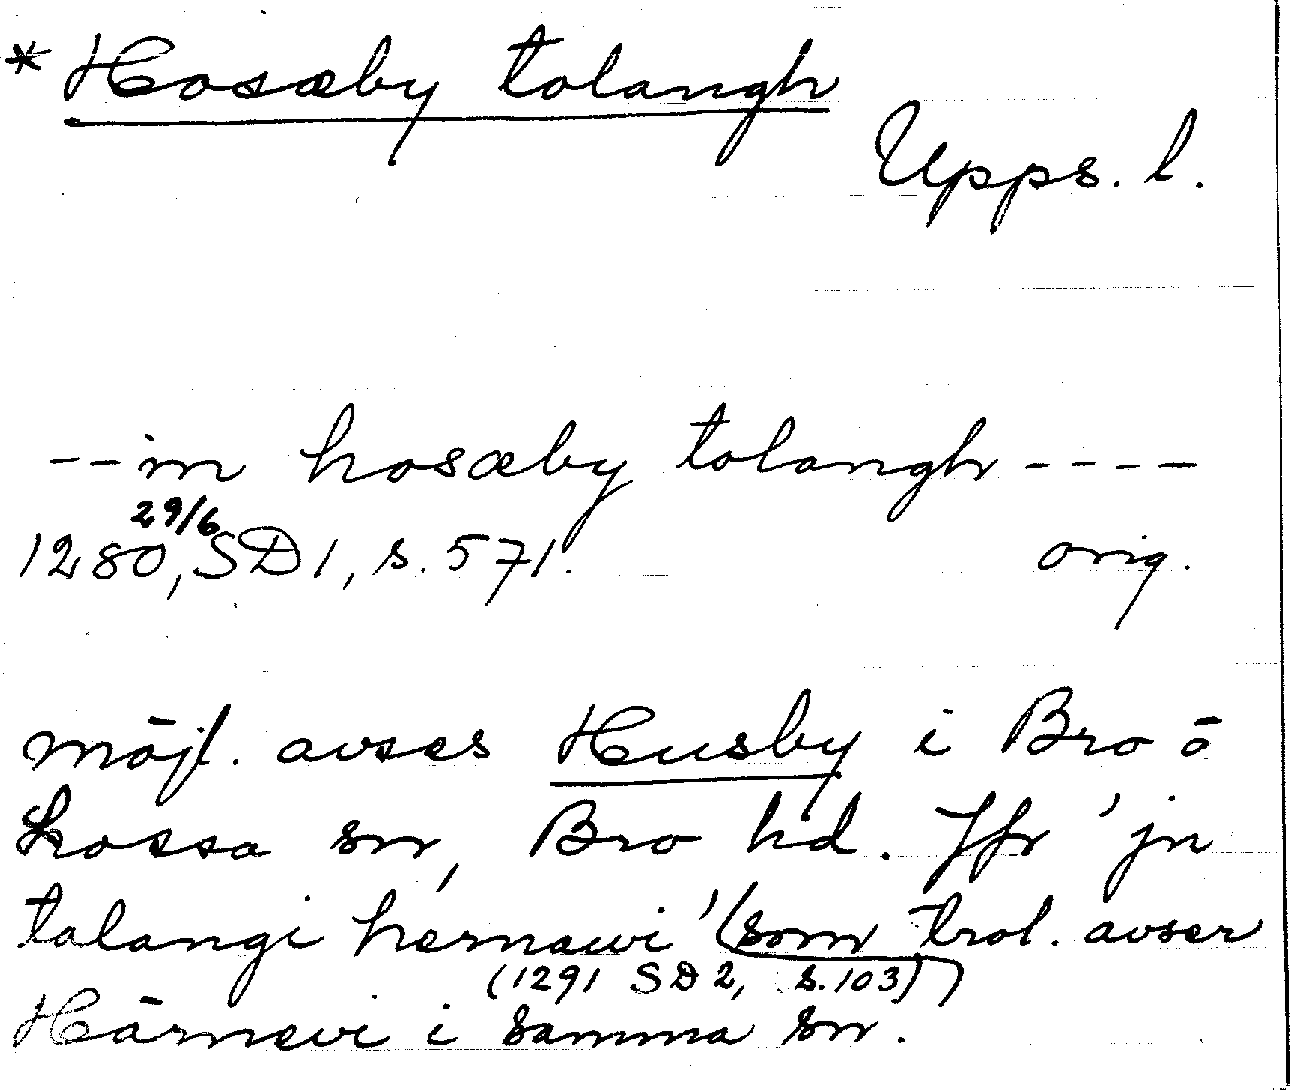 * Hosæby tolangh
Upps. l.
-- in hosæby tolangh ----
29/6
1280, SD 1, s. 571. orig.
möjl. avses Husby i Bro o
Lossa sn, Bro hd. Jfr 'jn
talangi hernawi' (som trol. avser
(1291 SD 2, s. 103))
Härnevi i samma sn.